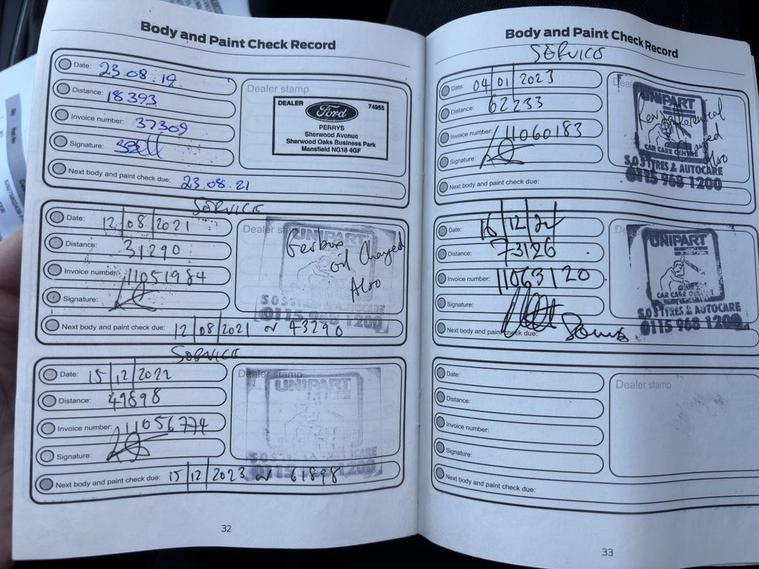 Body and Paint Check Record
Date: 23.08.19
Distance: 18393
Invoice number: 37309
Signature:
Next body and paint check due: 23.08.21
Dealer stamp
DEALER Ford 74955
PERRYS
Sherwood Avenue
Sherwood Oaks Business Park
Mansfield NG18 4GF
SERVICE
Date: 12/08/2021
Distance: 31290
Invoice number: 11051984
Signature:
Next body and paint check due: 12/08/2021 or 43290
Dealer
oil Changed
Also
SOS TYRES & AUTOCARE
0115 968 1200
SERVICE
Date: 15/12/2022
Distance: 49898
Invoice number: 11056774
Signature:
Next body and paint check due: 15/12/2023 or 61898
Dealer stamp
UNIPART
0115 968 1200
32
Body and Paint Check Record
SERVICE
Date: 04/01/2023
Distance: 62233
Invoice number: 11060183
Signature:
Next body and paint check due:
UNIPART
Also
CAR CARE CENTRE
SOS TYRES & AUTOCARE
0115 968 1200
Date: 16/12/24
Distance: 73126
Invoice number: 11063120
Signature:
Next body and paint check due:
UNIPART
CAR CARE
SOS TYRES & AUTOCARE
0115 968 1200
Date:
Distance:
Invoice number:
Signature:
Next body and paint check due:
Dealer stamp
33